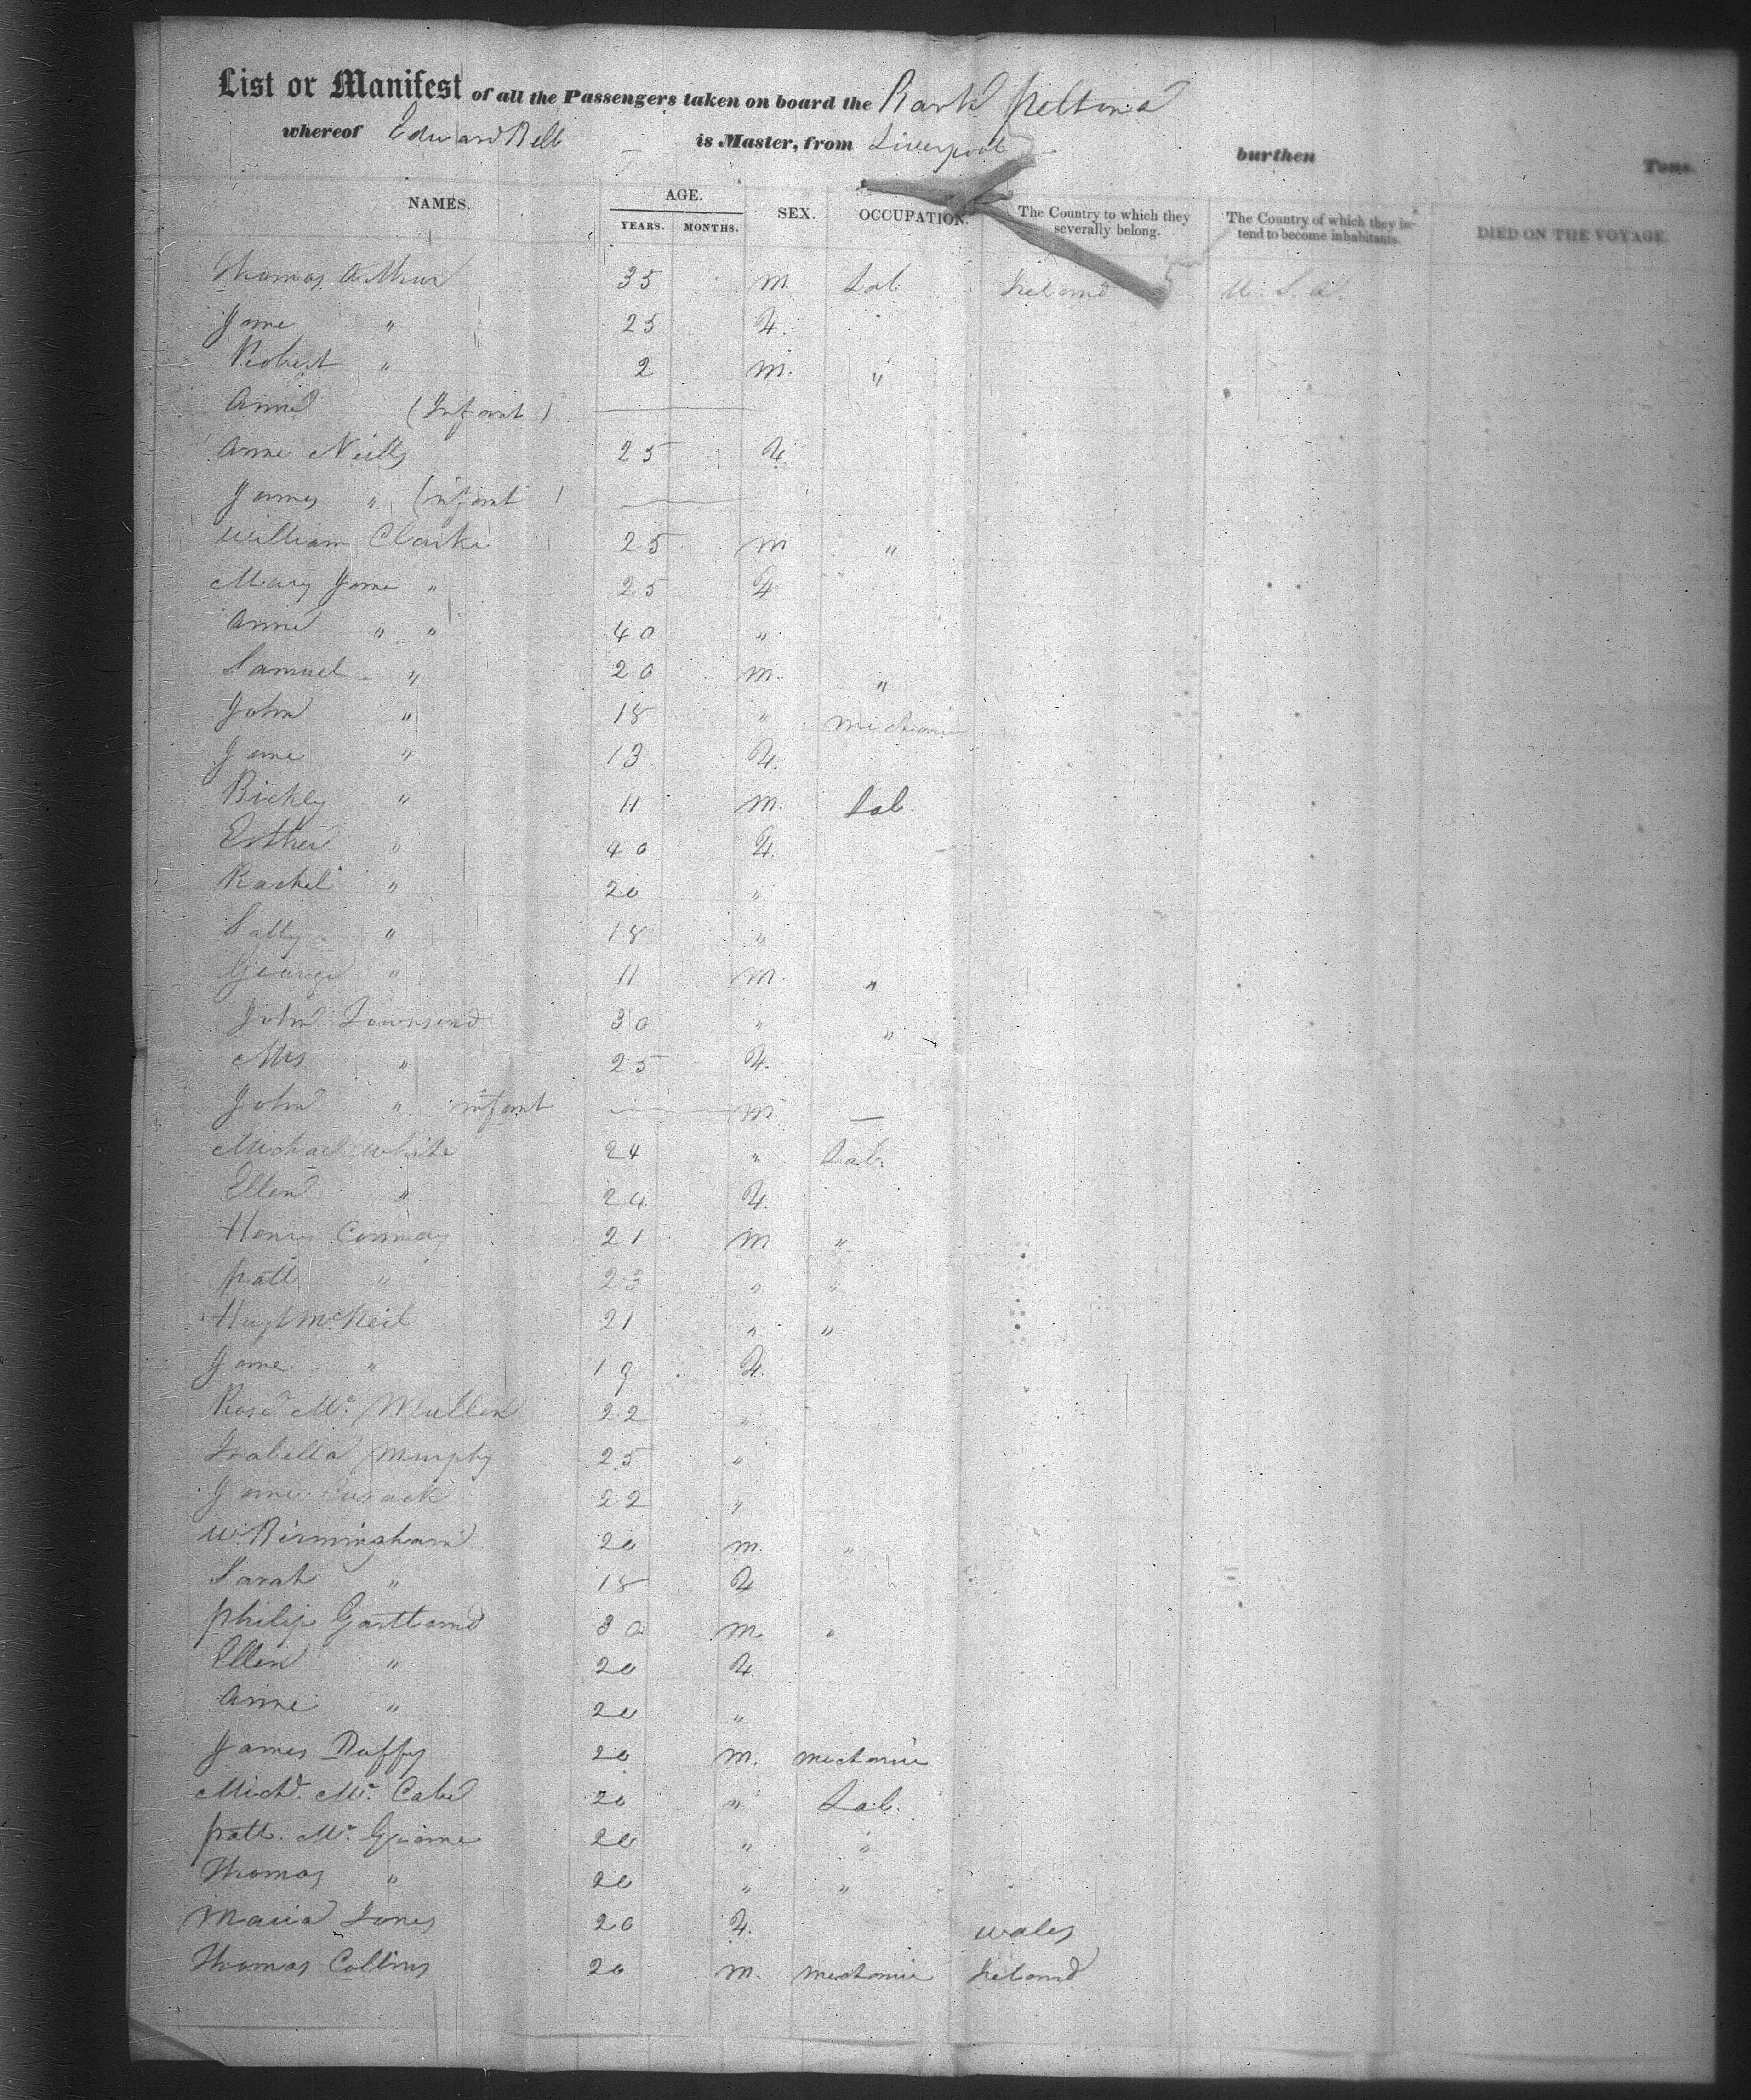 List or Manifest of all the Passengers taken on board the Bark
whereof Edward Bell is Master, from Liverpool burthen Tons.
NAMES. AGE. YEARS. MONTHS. SEX. OCCUPATION. The Country to which they severally belong. The Country of which they intend to become inhabitants. DIED ON THE VOYAGE.
Thomas Arthur 35 M. Lab Ireland U. S. A.
Jane " 25 F.
Robert " 2 M. "
Anne (Infant)
Anne Neills 25 F.
James " (infant)
William Clarke 25 M "
Mary Jane " 25 F
Anne " " 40 "
Samuel " 20 M. "
John " 18 " Mechanic
Jane " 13 F.
" 11 M. Lab.
Esther " 40 F.
Rachel " 20 "
Sally " 18 "
George " 11 M. "
John Townsend 30 " "
Mrs " 25 F.
John " infant M. —
Michael White 24 " Lab.
Ellen " 24 F.
Henry Conway 21 M "
Patt " 23 " "
Hugh McNeil 21 " "
Jane " 19 F.
Rose Mc. Mullen 22 "
Isabella Murphy 25 "
Jane Cusack 22 "
W. Birmingham 20 M. "
Sarah " 18 F
Philip Gartland 30 M "
Ellen " 20 F.
Anne " 20 "
James Duffy 20 M. Mechanic
Michl. Mc. Cabe 20 " Lab.
Patt. Mc. 20 " "
Thomas " 20 " "
Maria Jones 20 F. Wales
Thomas Collins 20 M. Mechanic Ireland